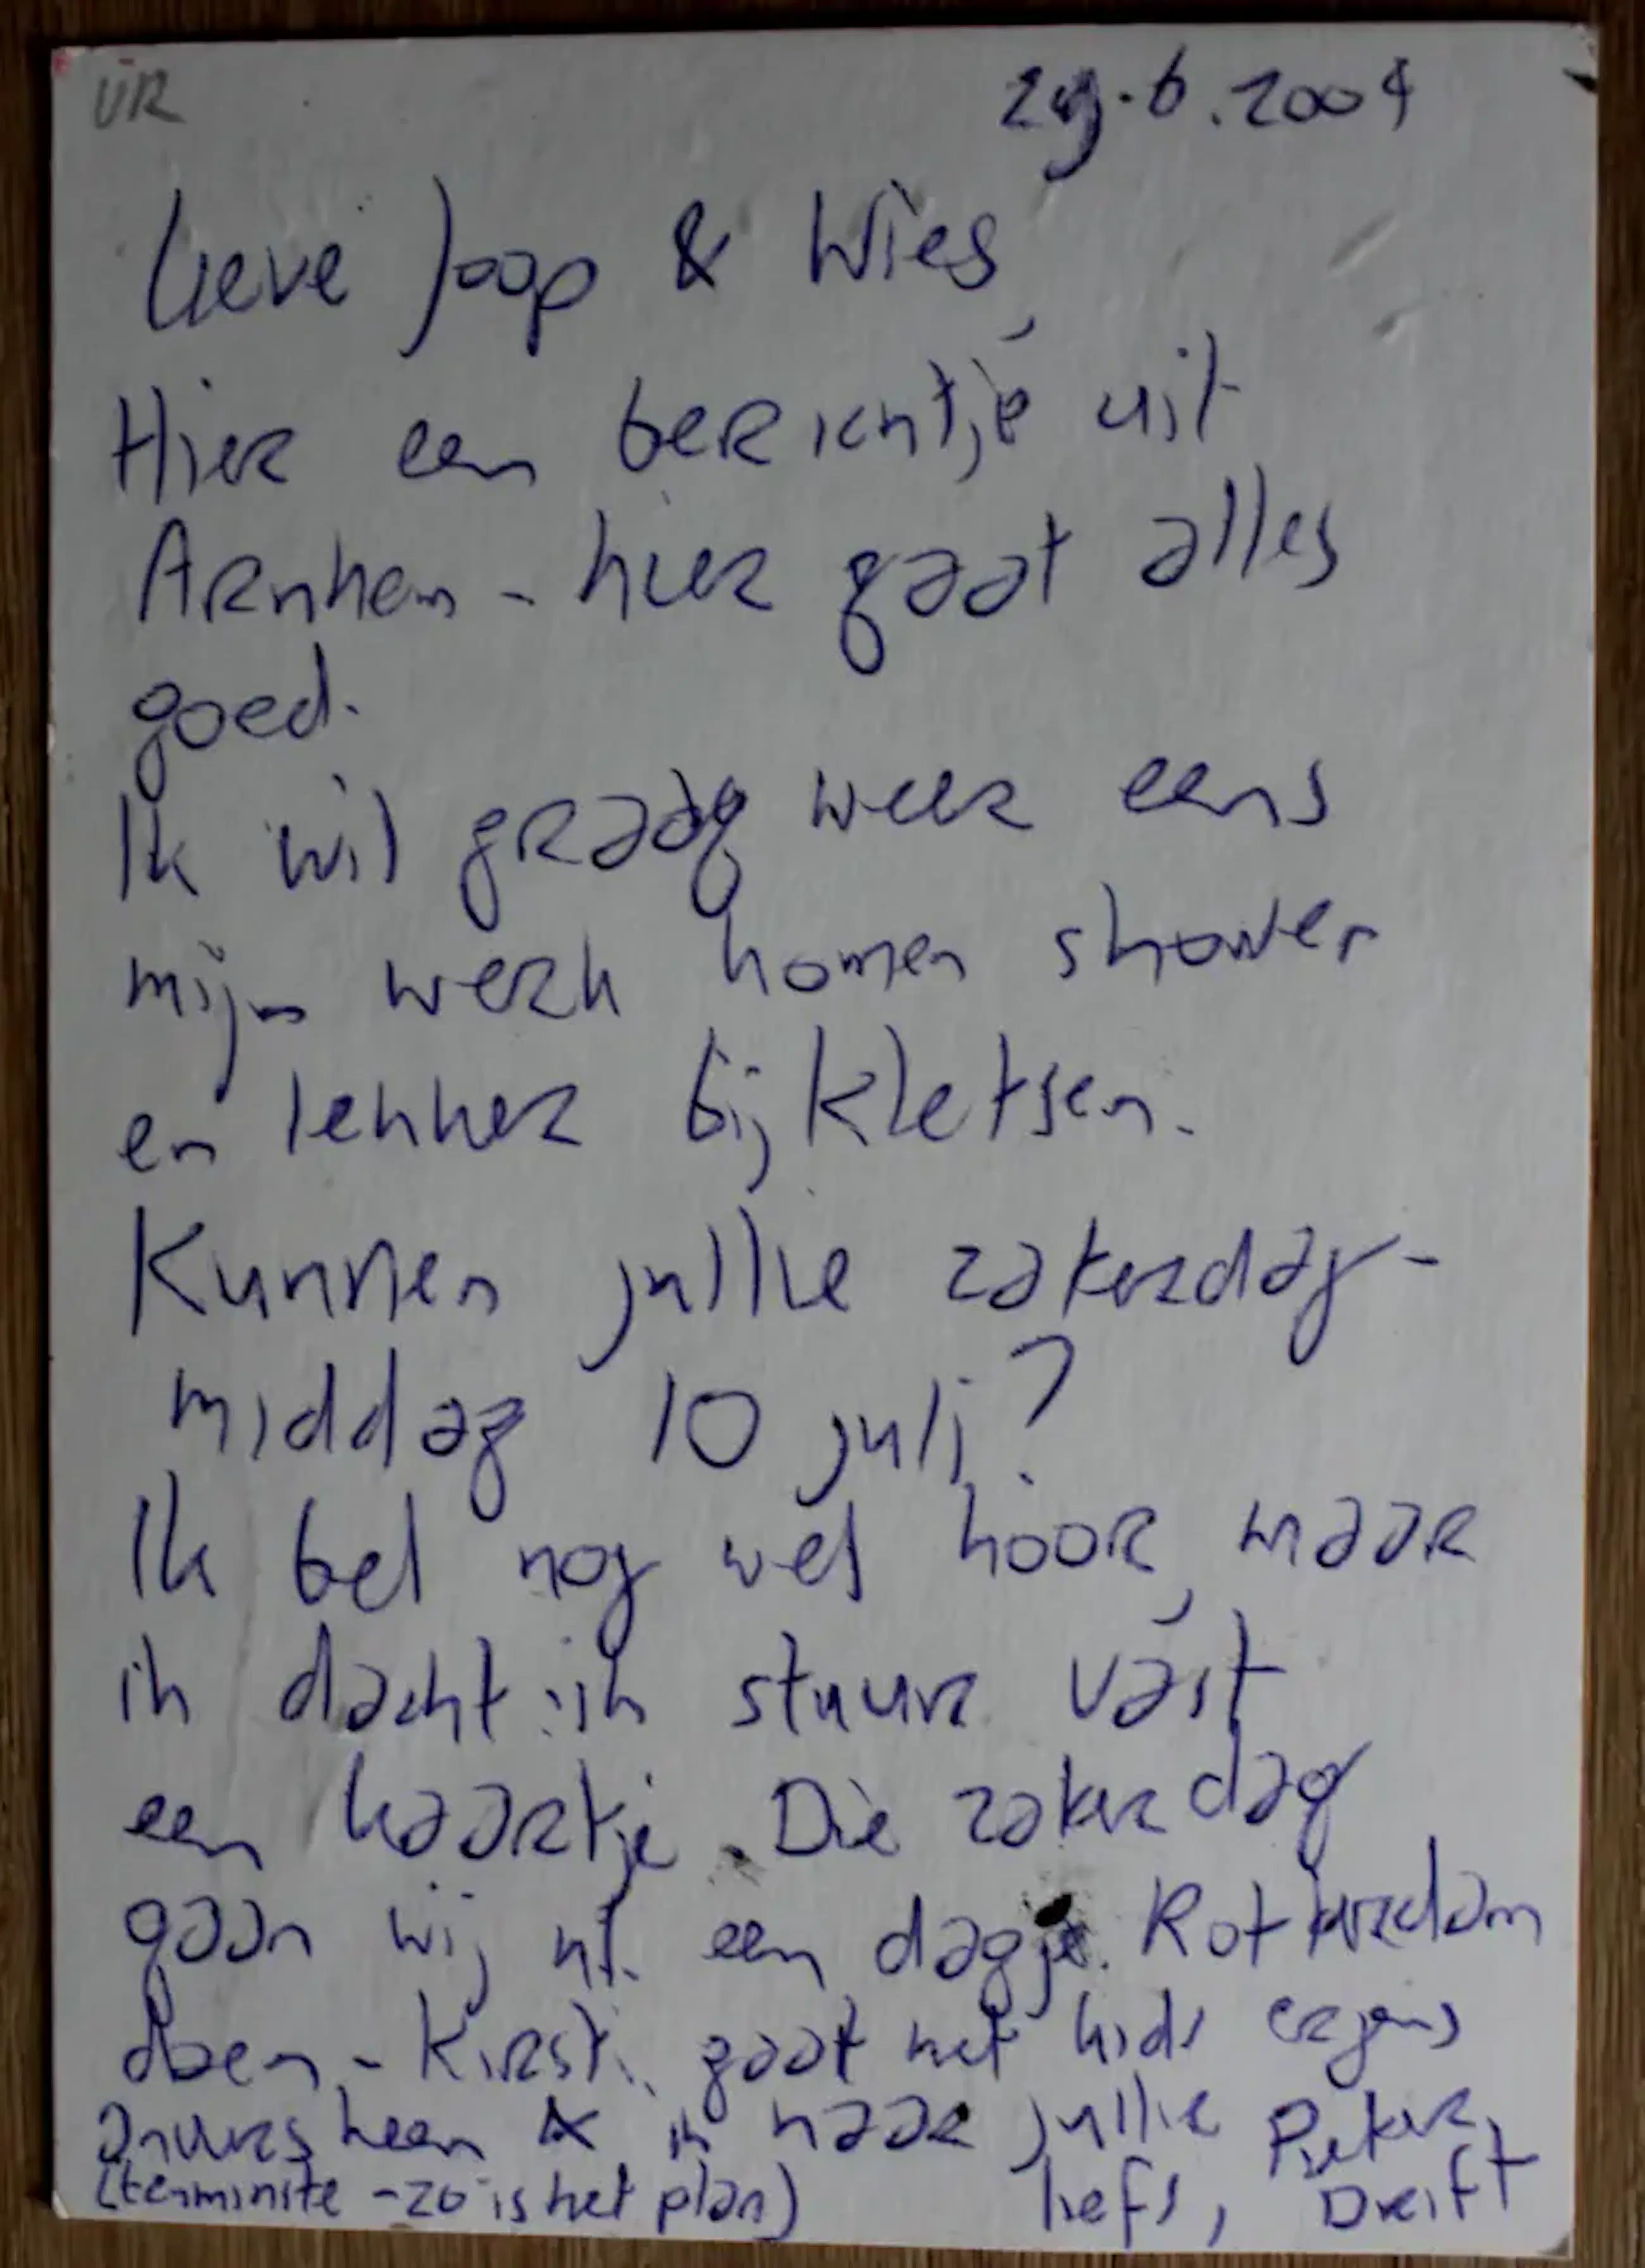 UR
29.6.2004
Lieve Joop & Wies,
Hier een berichtje uit
Arnhem - hier gaat alles
goed.
Ik wil graag weer eens
mijn werk komen showen
en lekker bijkletsen.
Kunnen jullie zaterdag-
middag 10 juli?
Ik bel nog wel hoor, maar
ik dacht: ik stuur vast
een kaartje. Die zaterdag
gaan wij nl. een dagje Rotterdam
doen - Kirsti gaat met kids ergens
anders heen & ik naar jullie
(tenminste - zo is het plan) liefs, Pieter